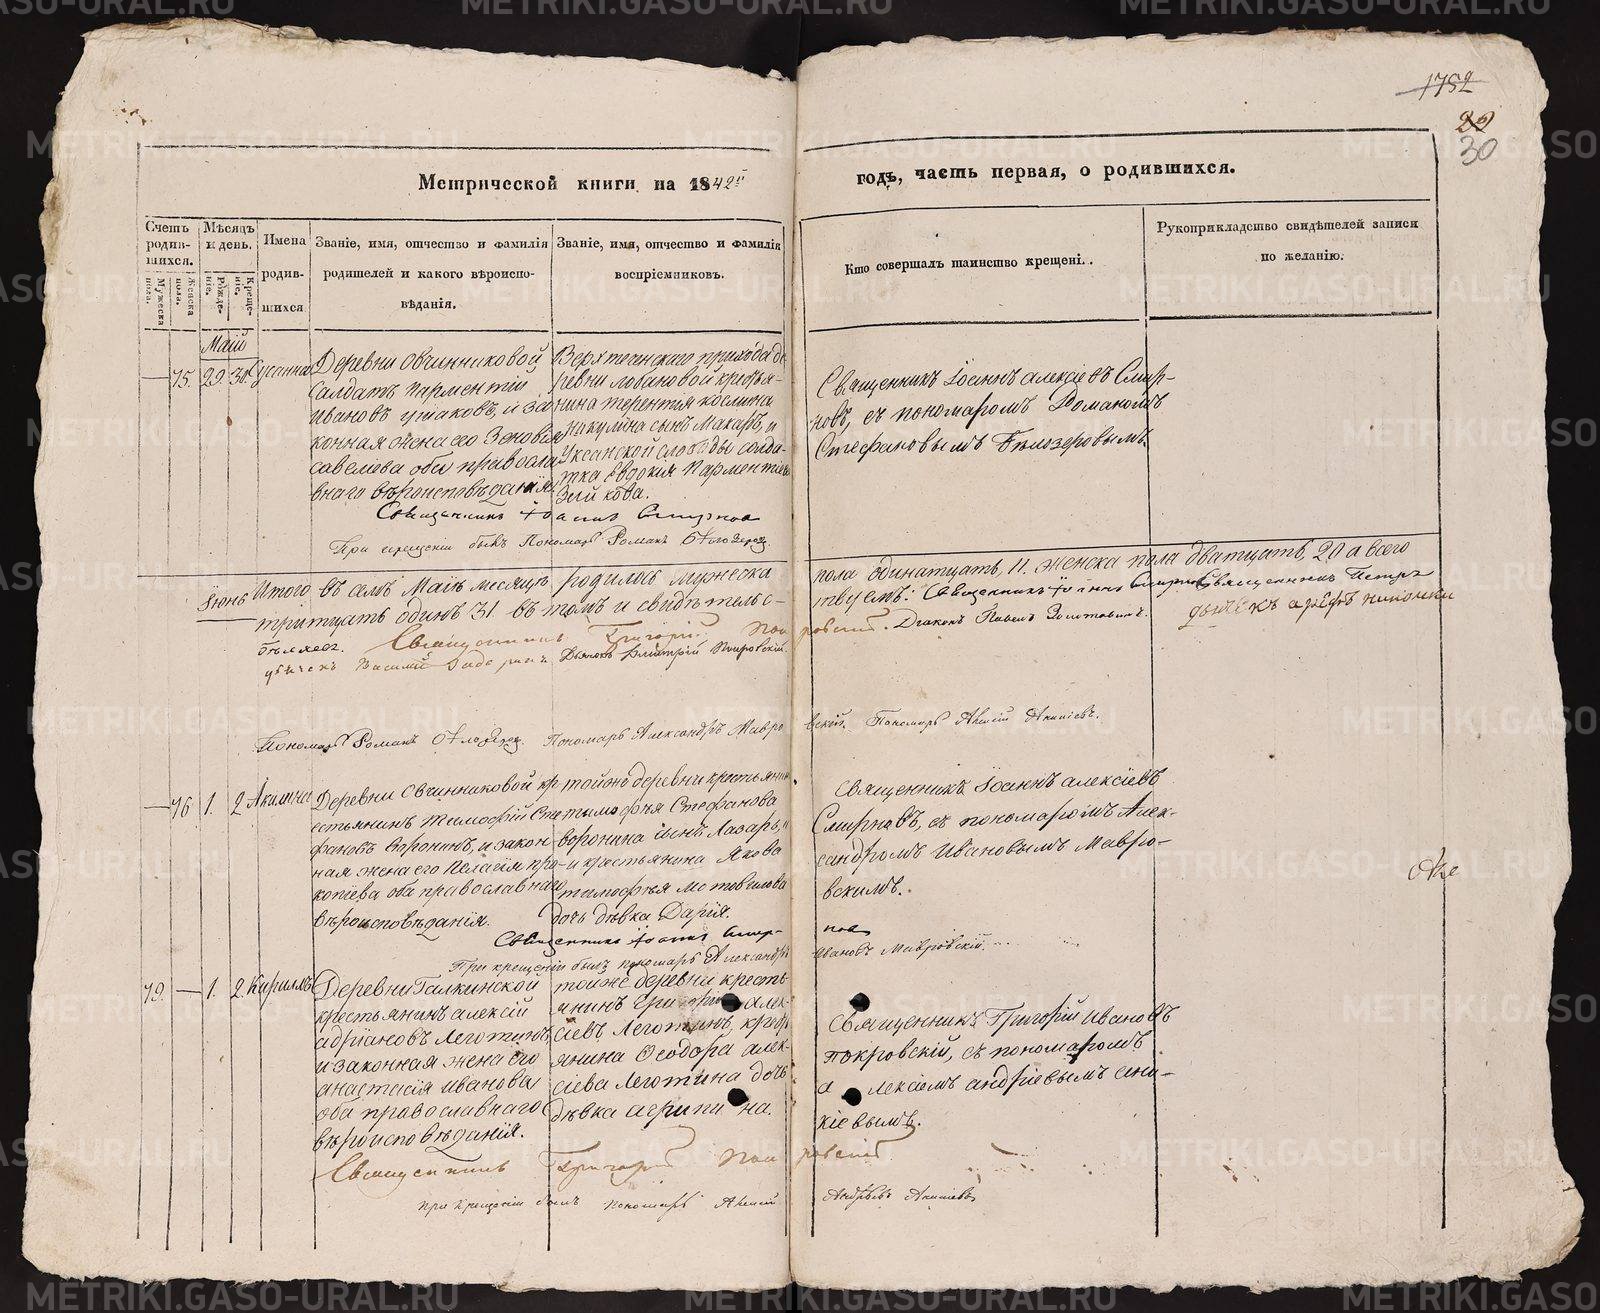 1752
22
30
Метрической книги на 1842й годъ, часть первая, о родившихся.
Счетъ родив-шихся.
Мужеска пола.
Женска пола.
Мѣсяцъ и день.
Рожде-ніе.
Креще-ніе.
Имена родив-шихся
Званіе, имя, отчество и фамилія родителей и какого вѣроиспо-вѣданія.
Званіе, имя, отчество и фамилія воспріемниковъ.
Кто совершалъ таинство крещені..
Рукоприкладство свидѣтелей записи по желанію.
Маій
75. 29. 30.
Деревни Овчинниковой
салдатъ Парментій
Ивановъ Ушаковъ, и за
конная жена его Зеновія
савелиева оба православ
внаго вѣроисповѣданія
Верхтеченскаго прихода де
ревни лобановой кресть-
янина терентія
Никулина сынъ Макаръ, и
Уксянской слободы солда-
тка Евдокия Парментиева
Священникъ Іоаннъ алексіевъ Смир-
новъ, съ пономаромъ Романомъ
Стефановымъ Бѣлозеровымъ
Священникъ Іоаннъ Смирнов
При крещеніи былъ Пономарь Романъ Бѣлозеров
Іюнь
Итого въ семъ Маіѣ месяцѣ родилось мужеска
пола одинатцать, 11. женска пола дватцать, 20 а всего
тритцать одинъ 31. въ томъ и свидѣтельс-
твуемъ: Священникъ Іоаннъ Смирнов Священникъ Петръ
Священникъ Григорій Покровский. Диаконъ Павелъ
дьячекъ Василий
Дьячокъ Дмитрій Покровскій.
Пономарь Романъ Бѣлозеров. Пономарь Александръ Мавровский. Пономарь Алексій Аникіевъ.
76 1. 2 Акилина
Деревни Овчинниковой кр
естьянинъ Тимофій Сте
фановъ Воронинъ, и закон
ная жена его Пелагія про-
копіева оба православнаго
вѣроисповѣданія.
тойже деревни крестьянина
тимофѣя Стефанова
воронина сынъ Лазарь, и
и крестьянина Якова
тимофѣя Мотовилова
дочь дѣвка Дарія.
Священникъ Іоаннъ алексіевъ
Смирновъ, съ пономаромъ Алек-
сандромъ Ивановымъ Мавро-
вскимъ.
Священникъ Іоаннъ Смир-
нов
При крещеніи былъ пономарь Александръ
Ивановъ Мавровскій.
79. 1. 2. Кириллъ
Деревни Галкинской
крестьянинъ алексій
адріановъ Леготинъ,
и законная жена его
анастасія иванова
оба православнаго
вѣроисповѣданія.
тойже деревни кресть-
янинъ Григорій алек-
сіевъ Леготинъ, крест
янина Ѳеодора алек-
сіева Леготина дочь
дѣвка агрипина.
Священникъ Григорій Ивановъ
покровскій, съ пономаромъ
алексіемъ андріевымъ ани-
кіевымъ.
Священникъ Григорий Покровский
при крещеніи былъ пономарь Алексій
Андрѣевъ Аникіевъ